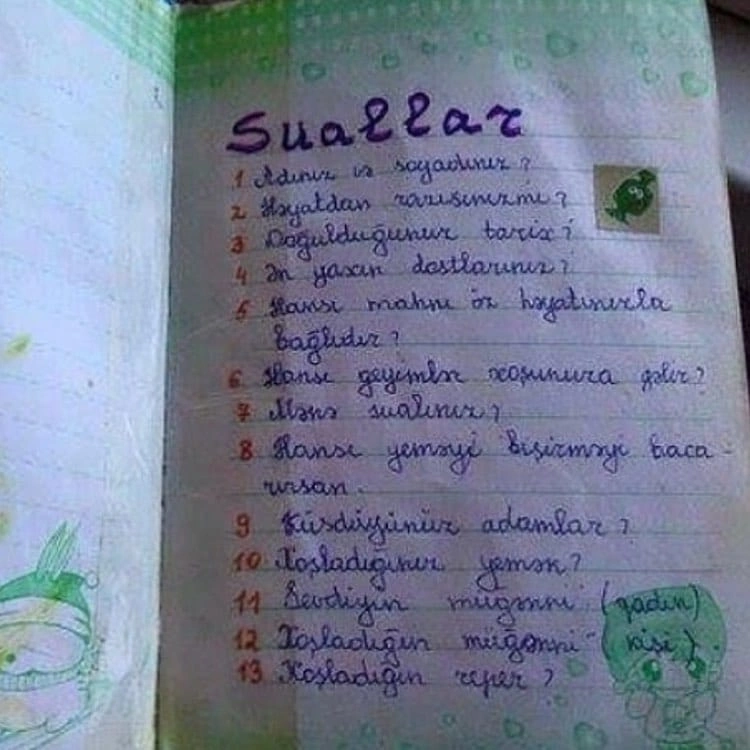 Suallar
1 Adınız və soyadınız?
2 Həyatdan razısınızmı?
3 Doğulduğunuz tarix?
4 Ən yaxın dostlarınız?
5 Hansı mahnı öz həyatınızla
bağlıdır?
6 Hansı geyimlər xoşunuza gəlir?
7 Mənə sualınız?
8 Hansı yeməyi bişirməyi baca-
rırsan.
9 Küsdüyünüz adamlar?
10 Xoşladığınız yemək?
11 Sevdiyin müğənni (qadın)
12 Xoşladığın müğənni (kişi).
13 Xoşladığın reper?